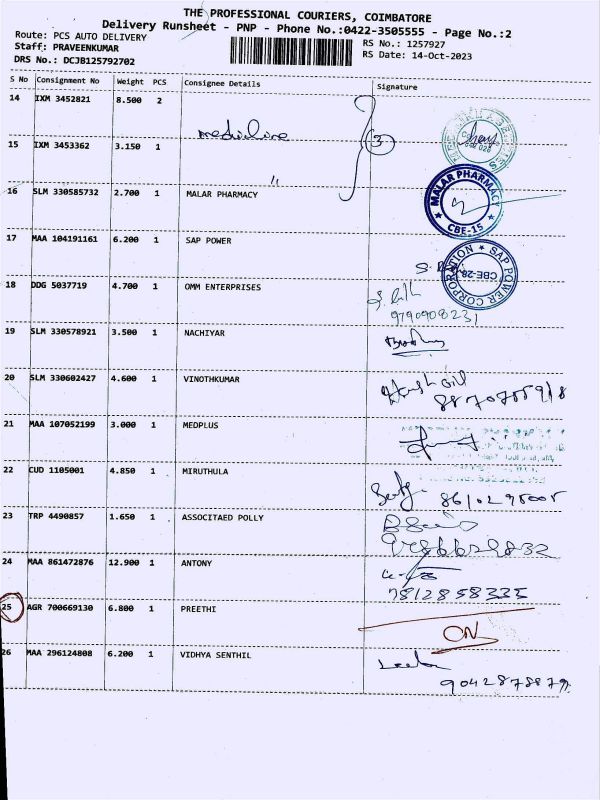 THE PROFESSIONAL COURIERS, COIMBATORE
Delivery Runsheet - PNP - Phone No.:0422-3505555 - Page No.:2
Route: PCS AUTO DELIVERY
Staff: PRAVEENKUMAR
DRS No.: DCJB125792702
RS No.: 1257927
RS Date: 14-Oct-2023
S No Consignment No Weight PCS Consignee Details Signature
14 IXM 3452821 8.500 2
15 IXM 3453362 3.150 1
3
16 SLM 330585732 2.700 1 MALAR PHARMACY
MALAR PHARMACY
CBE-15
17 MAA 104191161 6.200 1 SAP POWER
SAP POWER CORPORATION
CBE-28
18 DDG 5037719 4.700 1 OMM ENTERPRISES
9790908231
19 SLM 330578921 3.500 1 NACHIYAR
20 SLM 330602427 4.600 1 VINOTHKUMAR
21 MAA 107052199 3.000 1 MEDPLUS
22 CUD 1105001 4.850 1 MIRUTHULA
23 TRP 4490857 1.650 1 ASSOCITAED POLLY
24 MAA 861472876 12.900 1 ANTONY
7812858335
25 AGR 700669130 6.800 1 PREETHI
ON
26 MAA 296124808 6.200 1 VIDHYA SENTHIL
9042878879